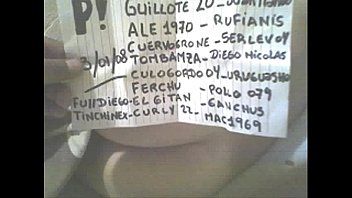 P!
GUILLOTE 20 -
ALE 1970 - RUFIANIS
CUERVOGRONE - SERLEVOY
3/01/08
TOMBAMZA - DIEGO NICOLAS
CULOGORDOOY - URUGUASHO
FERCHU - POLO 079
FULLDIEGO - EL GITAN - GAUCHUS
TINCHINEX - CURLY 22 - MAC1969